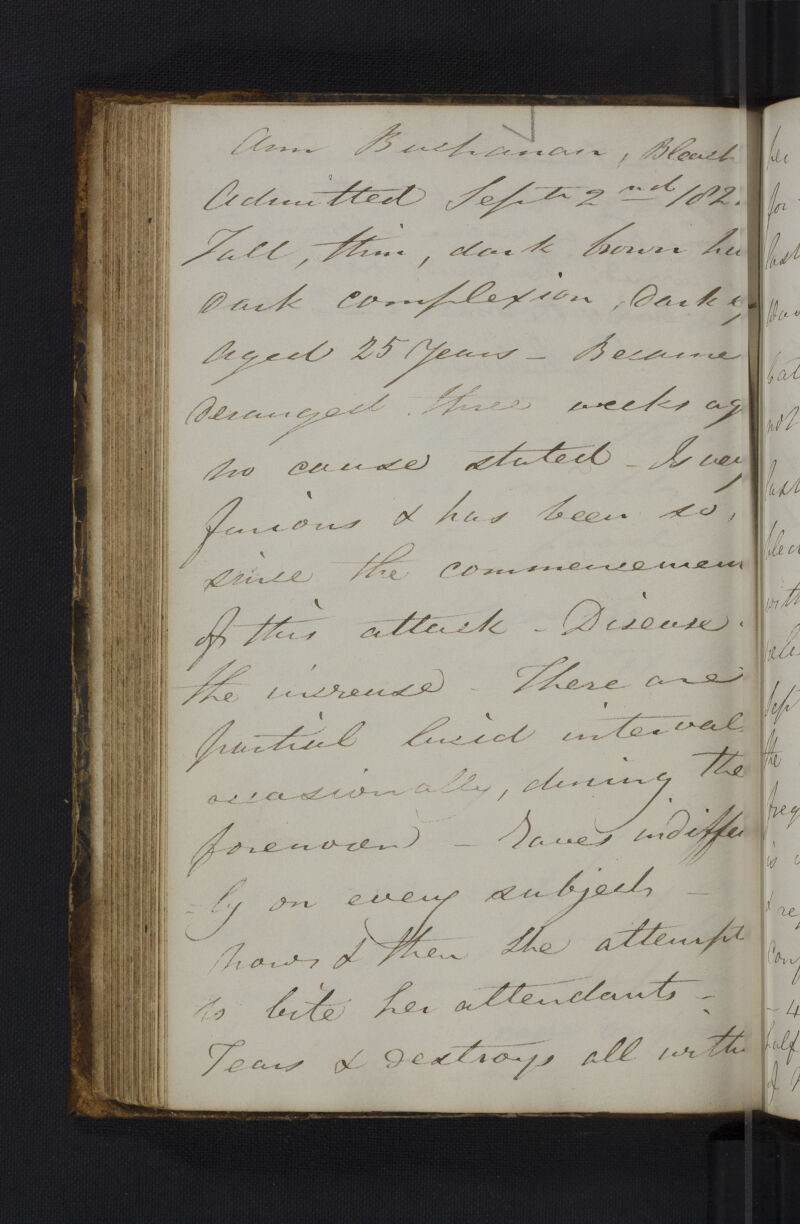 Ann Buchanan, Bleach
Admitted Septr 2nd 182
Tall, thin, dark brown ha
Dark complexion, Dark ey
Aged 25 Years - Became
Deranged three weeks ag
no cause stated - Is very
furious & has been so,
since the commencemen
of this attack - Disease
the increase - There are
partial lucid interval
occasionally, during the
forenoon - Raves indiffer
=ly on every subject -
now & then she attempt
to bite her attendants -
Tears & destroys all with
her
for
last
bat
not
last
with
Sep
the
freq
is
& re
Con
- 4
half
of